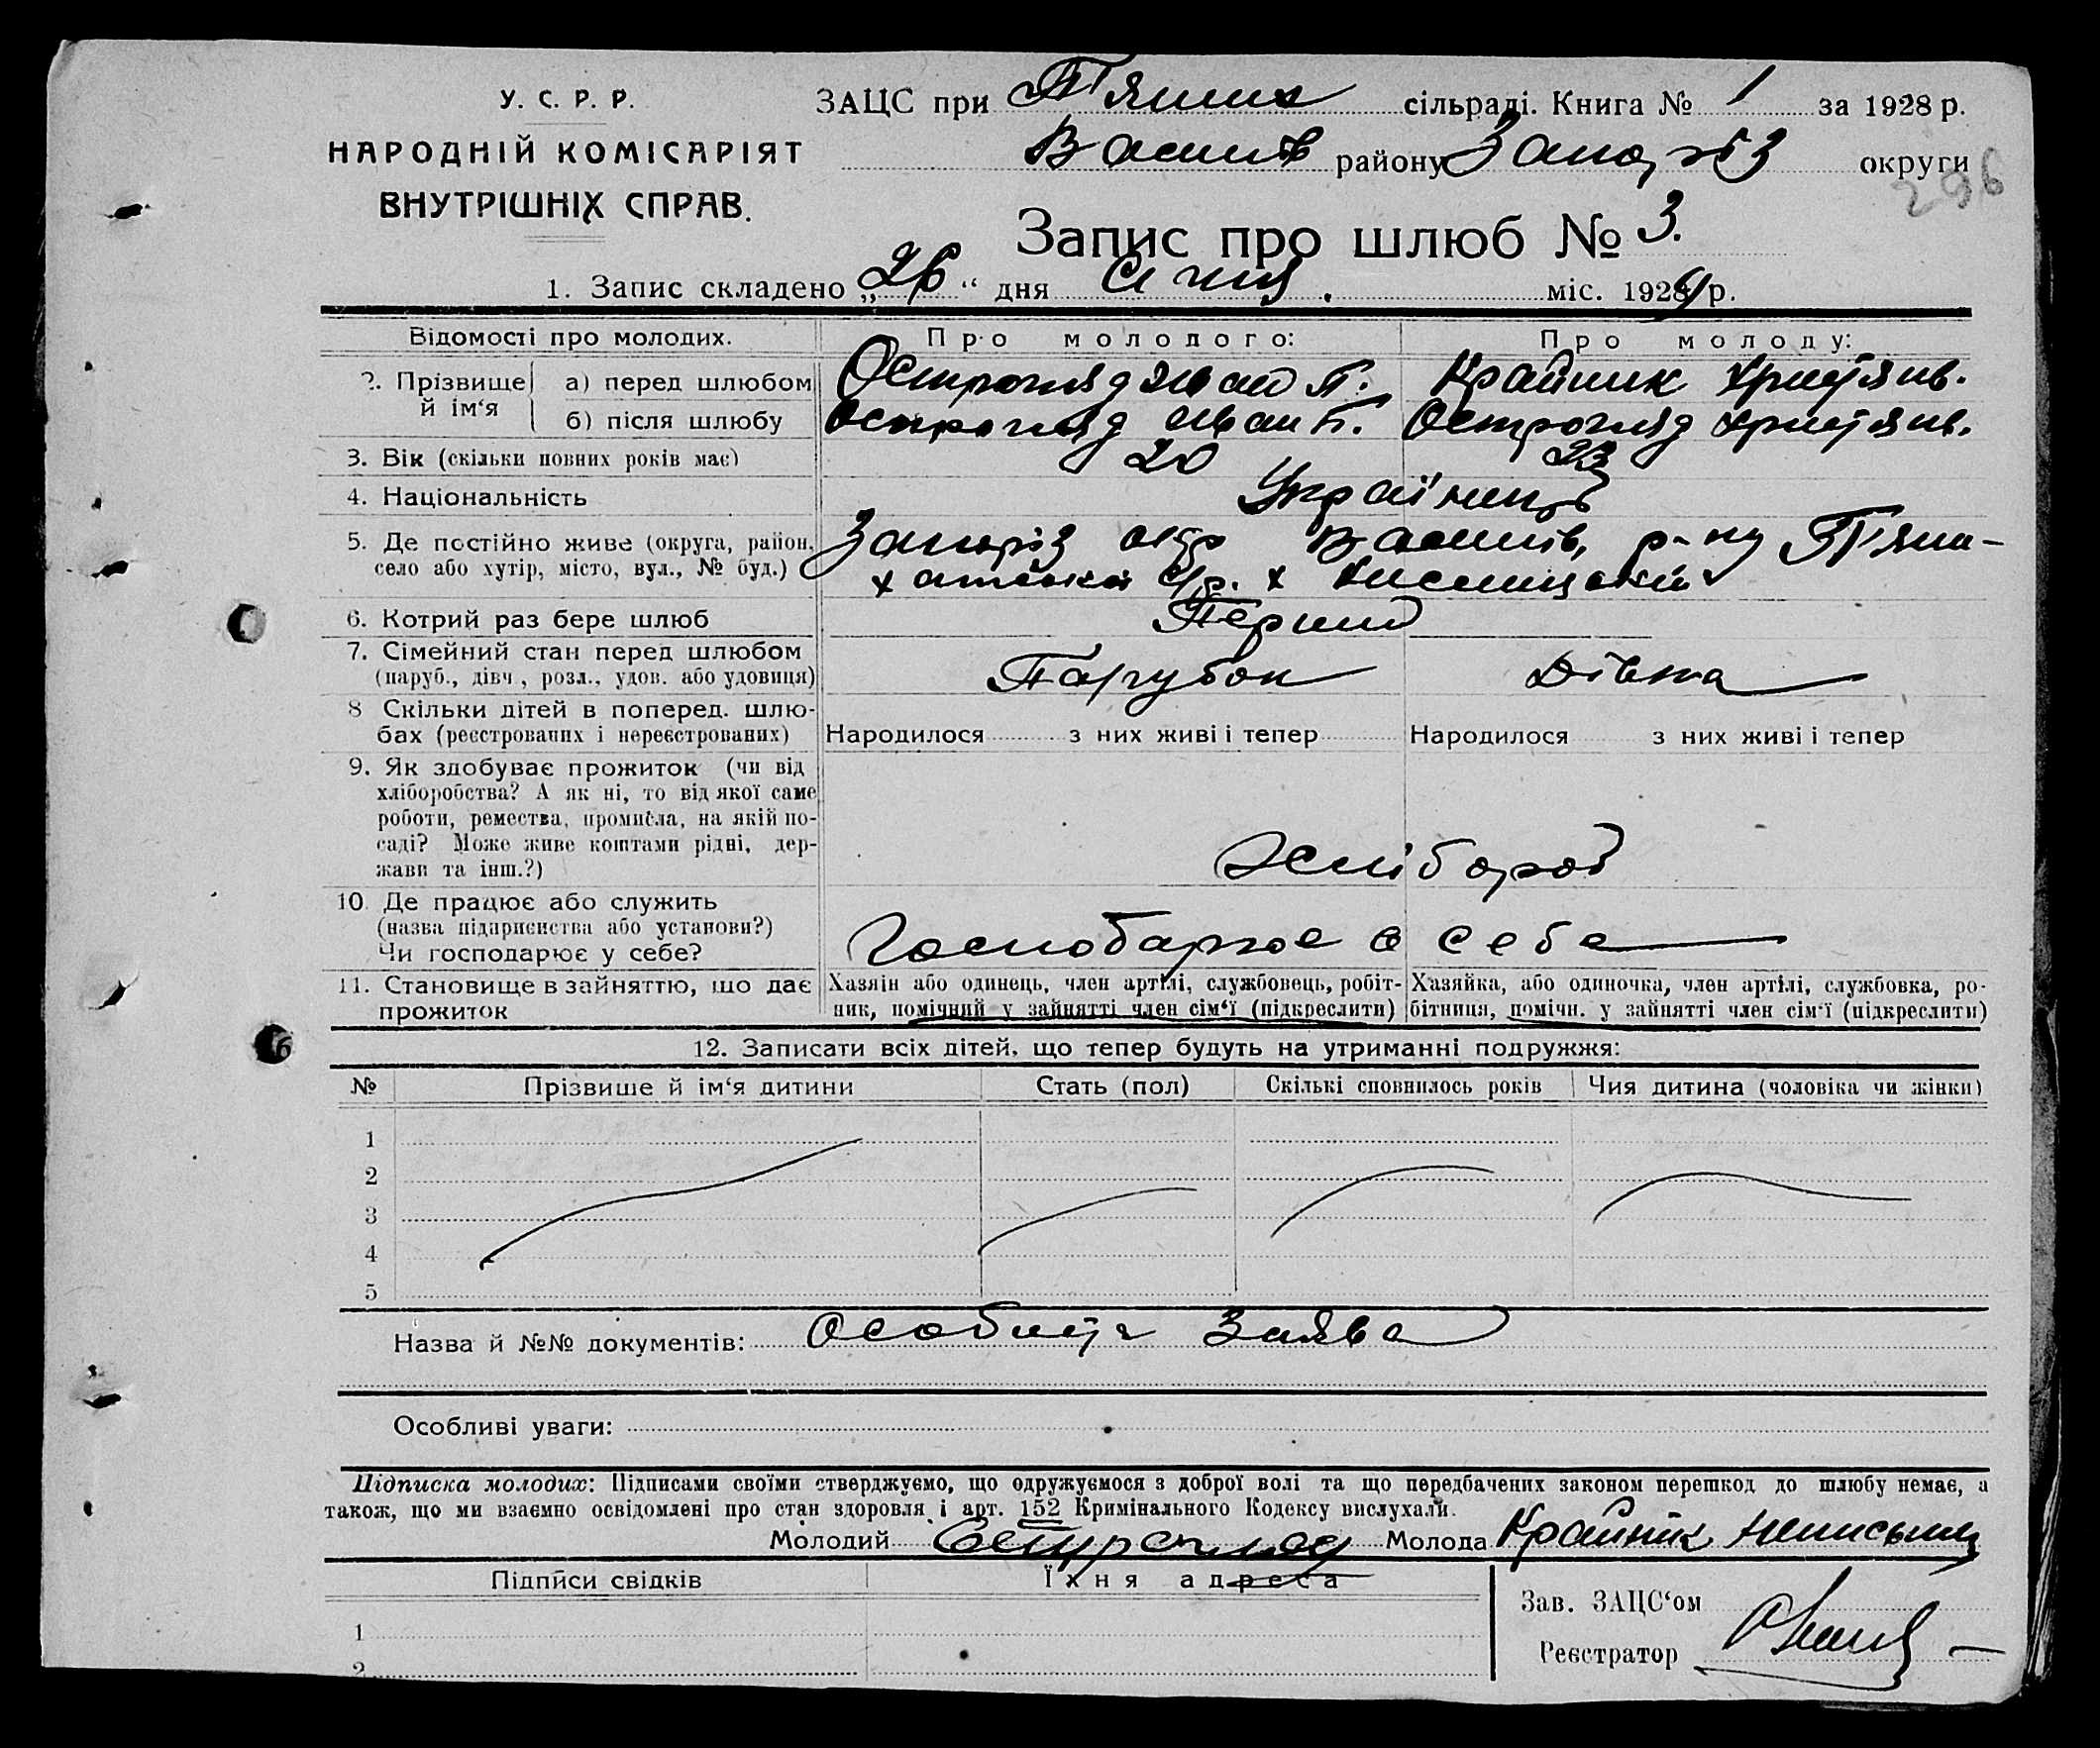 У. С. Р. Р.
НАРОДНІЙ КОМІСАРІЯТ
ВНУТРІШНІХ СПРАВ.
ЗАЦС при П'яших сільраді. Книга № 1 за 1928 р.
Васил району Запоріз округи
296
Запис про шлюб № 3.
1. Запис складено „26“ дня Січня міс. 1929 р.
Відомості про молодих.
Про молодого:
Про молоду:
2. Прізвище й ім‘я
а) перед шлюбом
Острогляд Іван П.
Крайник Христянв.
б) після шлюбу
Острогляд Іван П.
Острогляд Христянв.
3. Вік (скільки повних років має)
20
23
4. Національність
Українць
5. Де постійно живе (округа, район, село або хутір, місто, вул., № буд.)
Запоріз окр Васил р-ну П'яти-
хатської с/р. х
6. Котрий раз бере шлюб
Перший
7. Сімейний стан перед шлюбом
(паруб., дівч., розл., удов. або удовиця)
Парубок
Дівка
8 Скільки дітей в поперед. шлю-
бах (реєстрованих і нереєстрованих)
Народилося з них живі і тепер
Народилося з них живі і тепер
9. Як здобуває прожиток (чи від
хліборобства? А як ні, то від якої саме
роботи, ремества, промисла, на якій по-
саді? Може живе коштами рідні, дер-
жави та інш.?)
Хлібороб
10. Де працює або служить
(назва підприємства або установи?)
Чи господарює у себе?
Господарює в себе
11. Становище в зайняттю, що дає
прожиток
Хазяїн або одинець, член артілі, службовець, робіт-
ник, помічний у зайнятті член сім‘ї (підкреслити)
Хазяйка, або одиночка, член артілі, службовка, ро-
бітниця, помічн. у зайнятті член сім‘ї (підкреслити)
6
12. Записати всіх дітей, що тепер будуть на утриманні подружжя:
№
Прізвише й ім‘я дитини
Стать (пол)
Скількі сповнилось років
Чия дитина (чоловіка чи жінки)
1
2
3
4
5
Назва й №№ документів: Особиста Заява
Особливі уваги:
Підписка молодих: Підписами своїми стверджуємо, що одружуємося з доброї волі та що передбачених законом перешкод до шлюбу немає, а
також, що ми взаємно освідомлені про стан здоровля і арт. 152 Кримінального Кодексу вислухали.
Молодий Острогляд Молода Крайнік неписьмен
Підписи свідків
Їхня адреса
1
2
Зав. ЗАЦС‘ом
Реєстратор